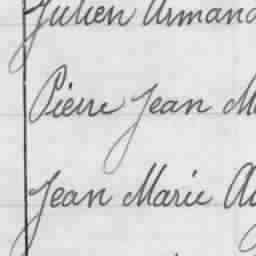 Julien Armand
Pierre Jean M
Jean Marie Au